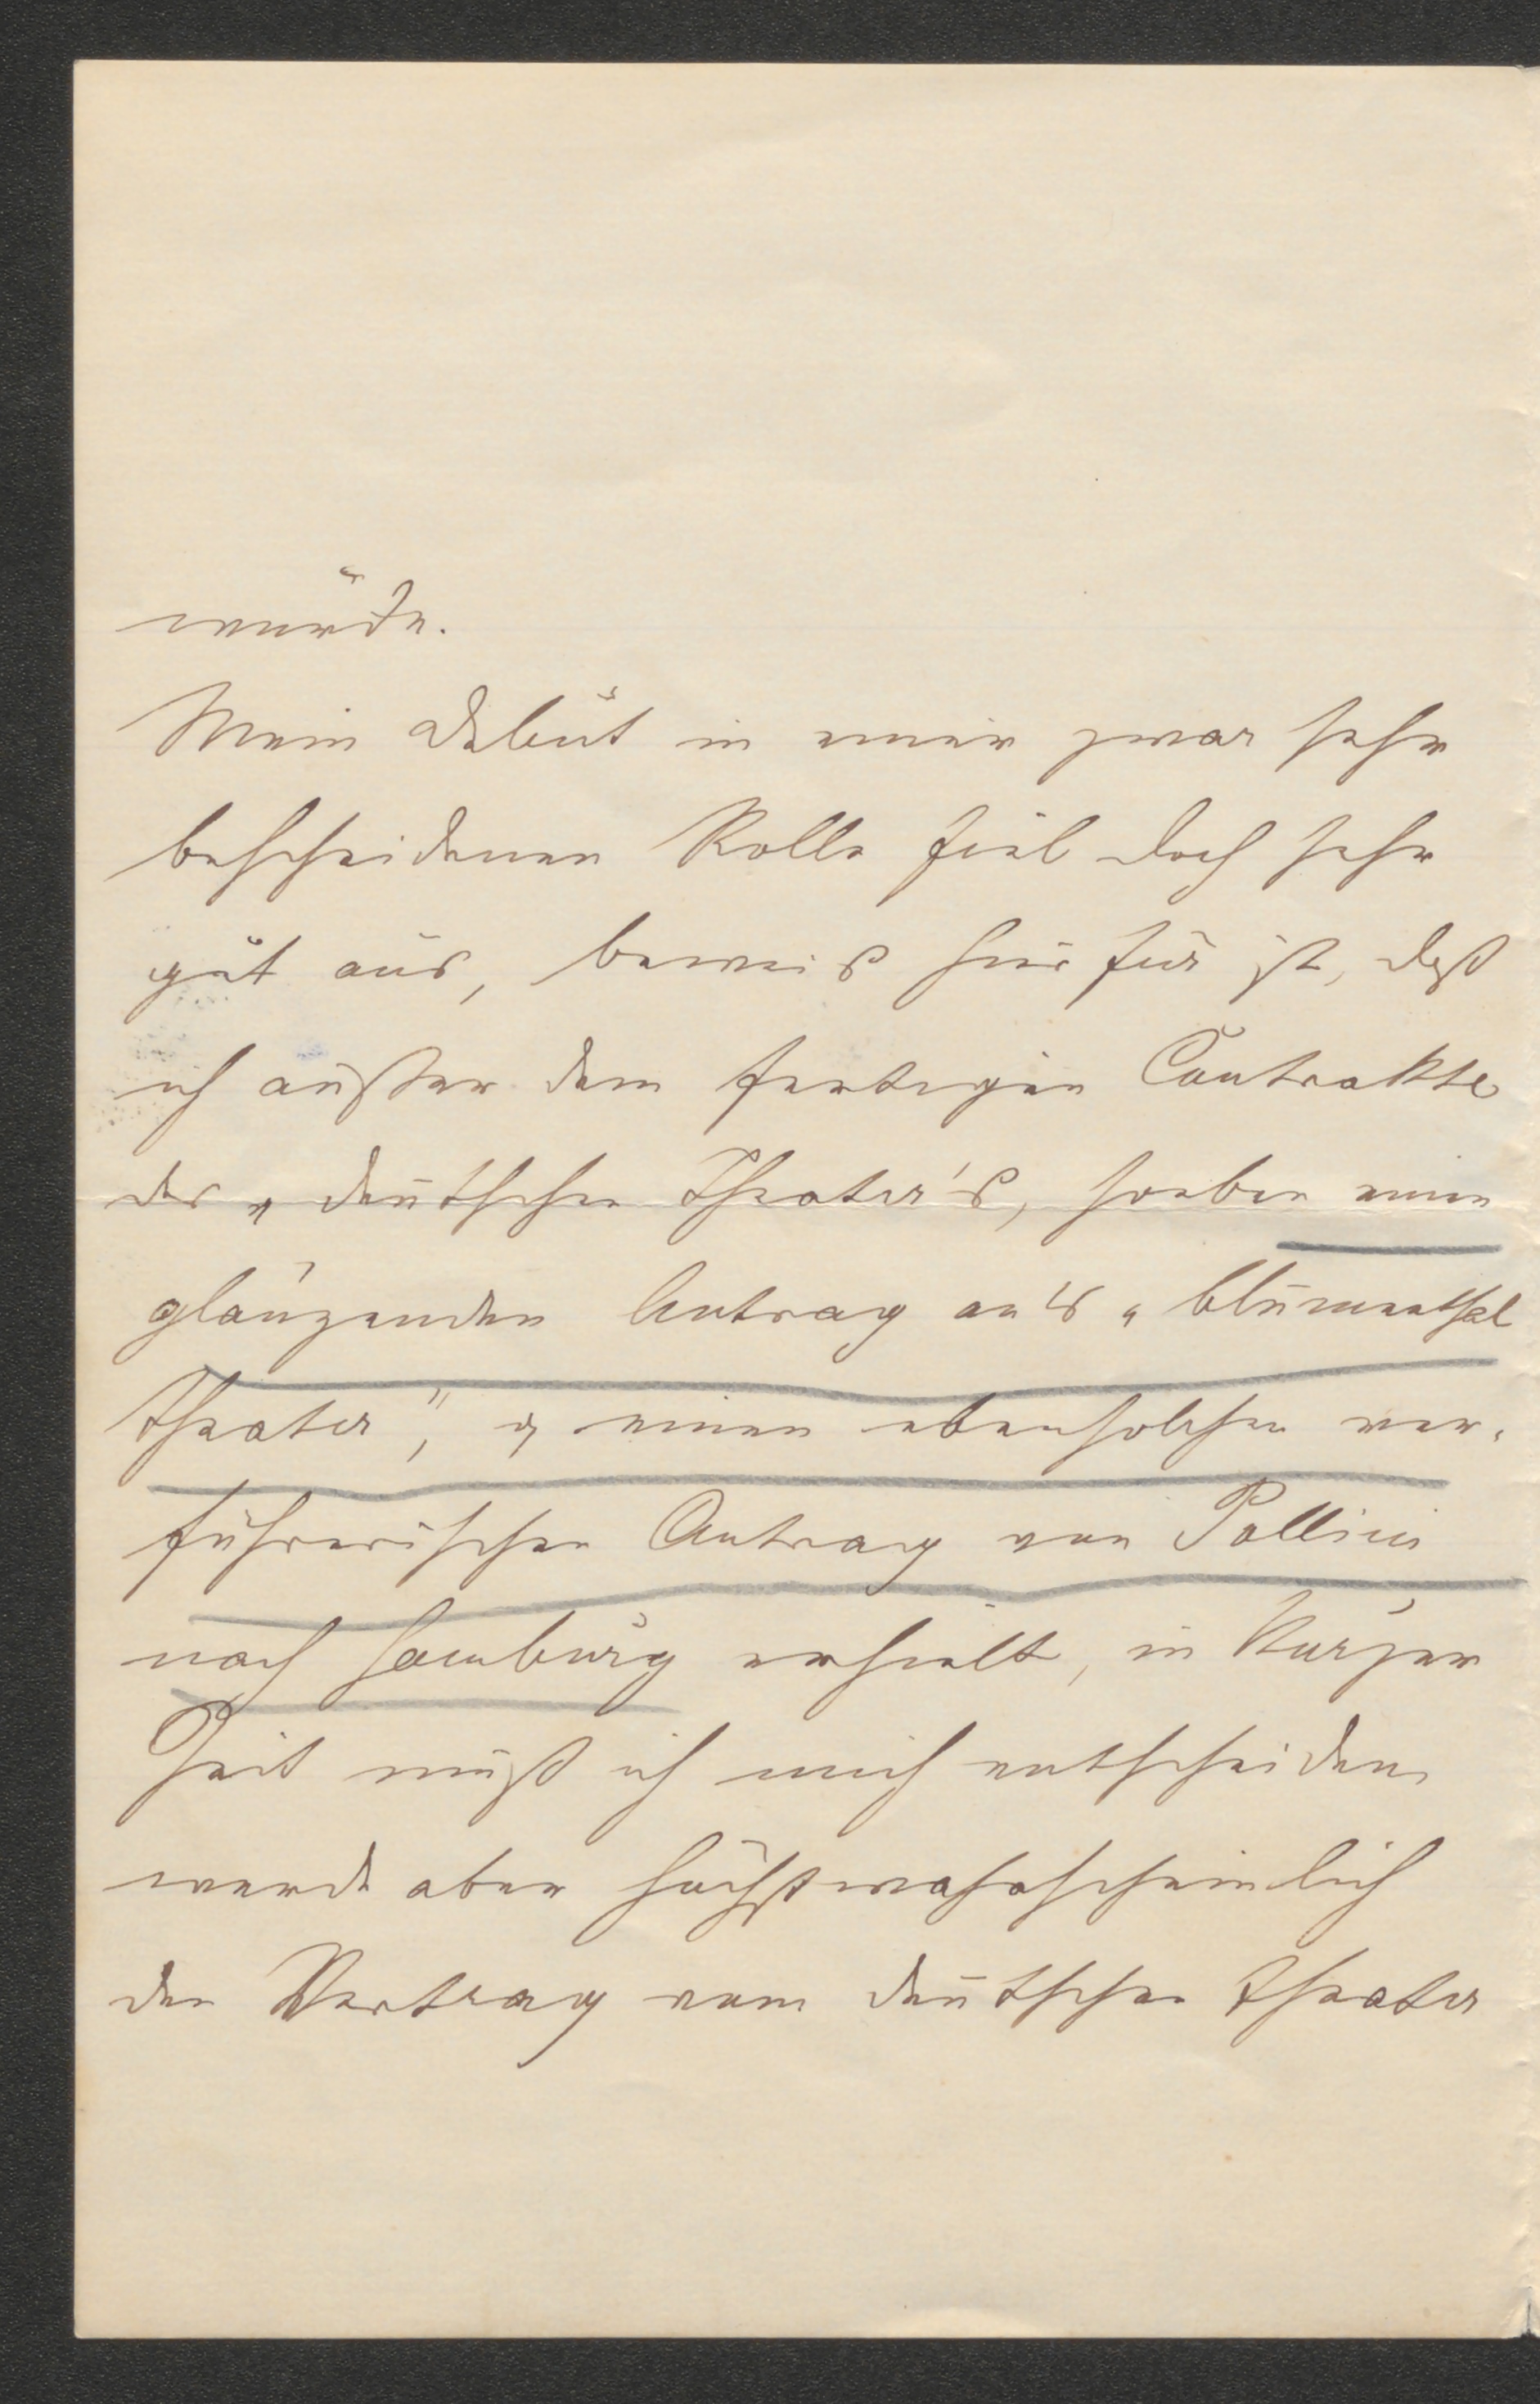 würde.
Mein Debut in einer zwar sehr
bescheidenen Rolle fiel doch sehr
gut aus, beweis hierfür ist, daß
ich außer dem fertigen Contrakte
des „deutschen Theater's, soeben einen
glänzenden Antrag an's „Blumenthal
Theater", & einen ebensolchen ver-
führerischen Antrag von Pollini
nach Hamburg erhielt, in kurzer
Zeit muß ich mich entscheiden
werde aber höchstwahrscheinlich
den Vertrag vom deutschen Theater